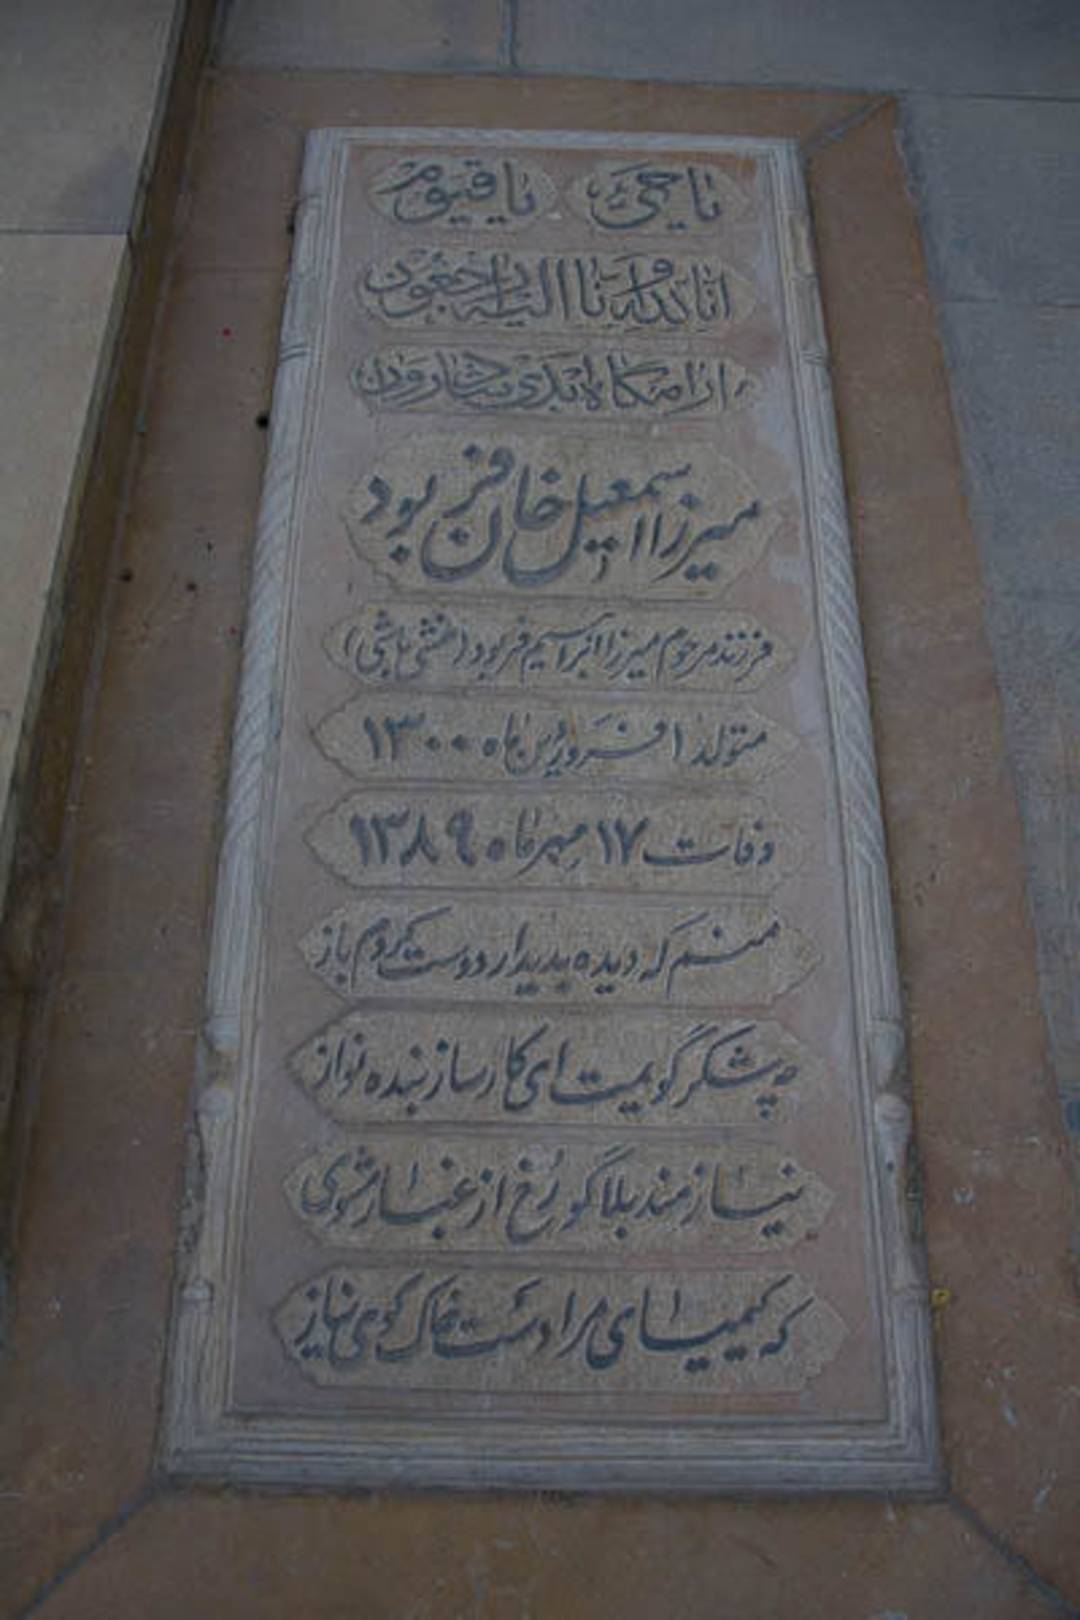 یا حی یا قیوم
انا لله و انا الیه راجعون
آرامگاه ابدی شادروان
میرزا اسمعیل خان فربود
فرزند مرحوم میرزا ابراهیم فربود (منشی باشی)
متولد ۱ فروردین ماه ۱۳۰۰
وفات ۱۷ مهرماه ۱۳۸۹
منم که دیده بدیدار دوست کردم باز
چه شکر گویمت ای کارساز بنده نواز
نیازمند بلا گو رخ از غبار مشوی
که کیمیای مرادست خاک کوی نیاز